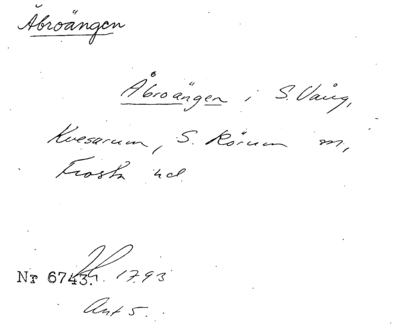 Åbroängen
Åbroängen i S. Vång,
Kvesarum, S. Rörum m,
Frosta hd.
Nr 6743. 1793
Akt 5.